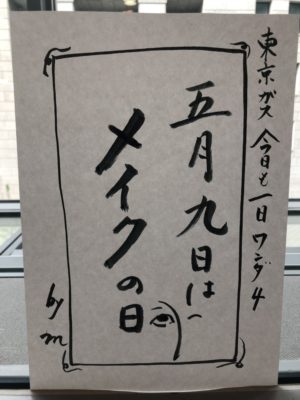 東京ガス 今日も一日ワンダ4
五月九日は
メイクの日
by m